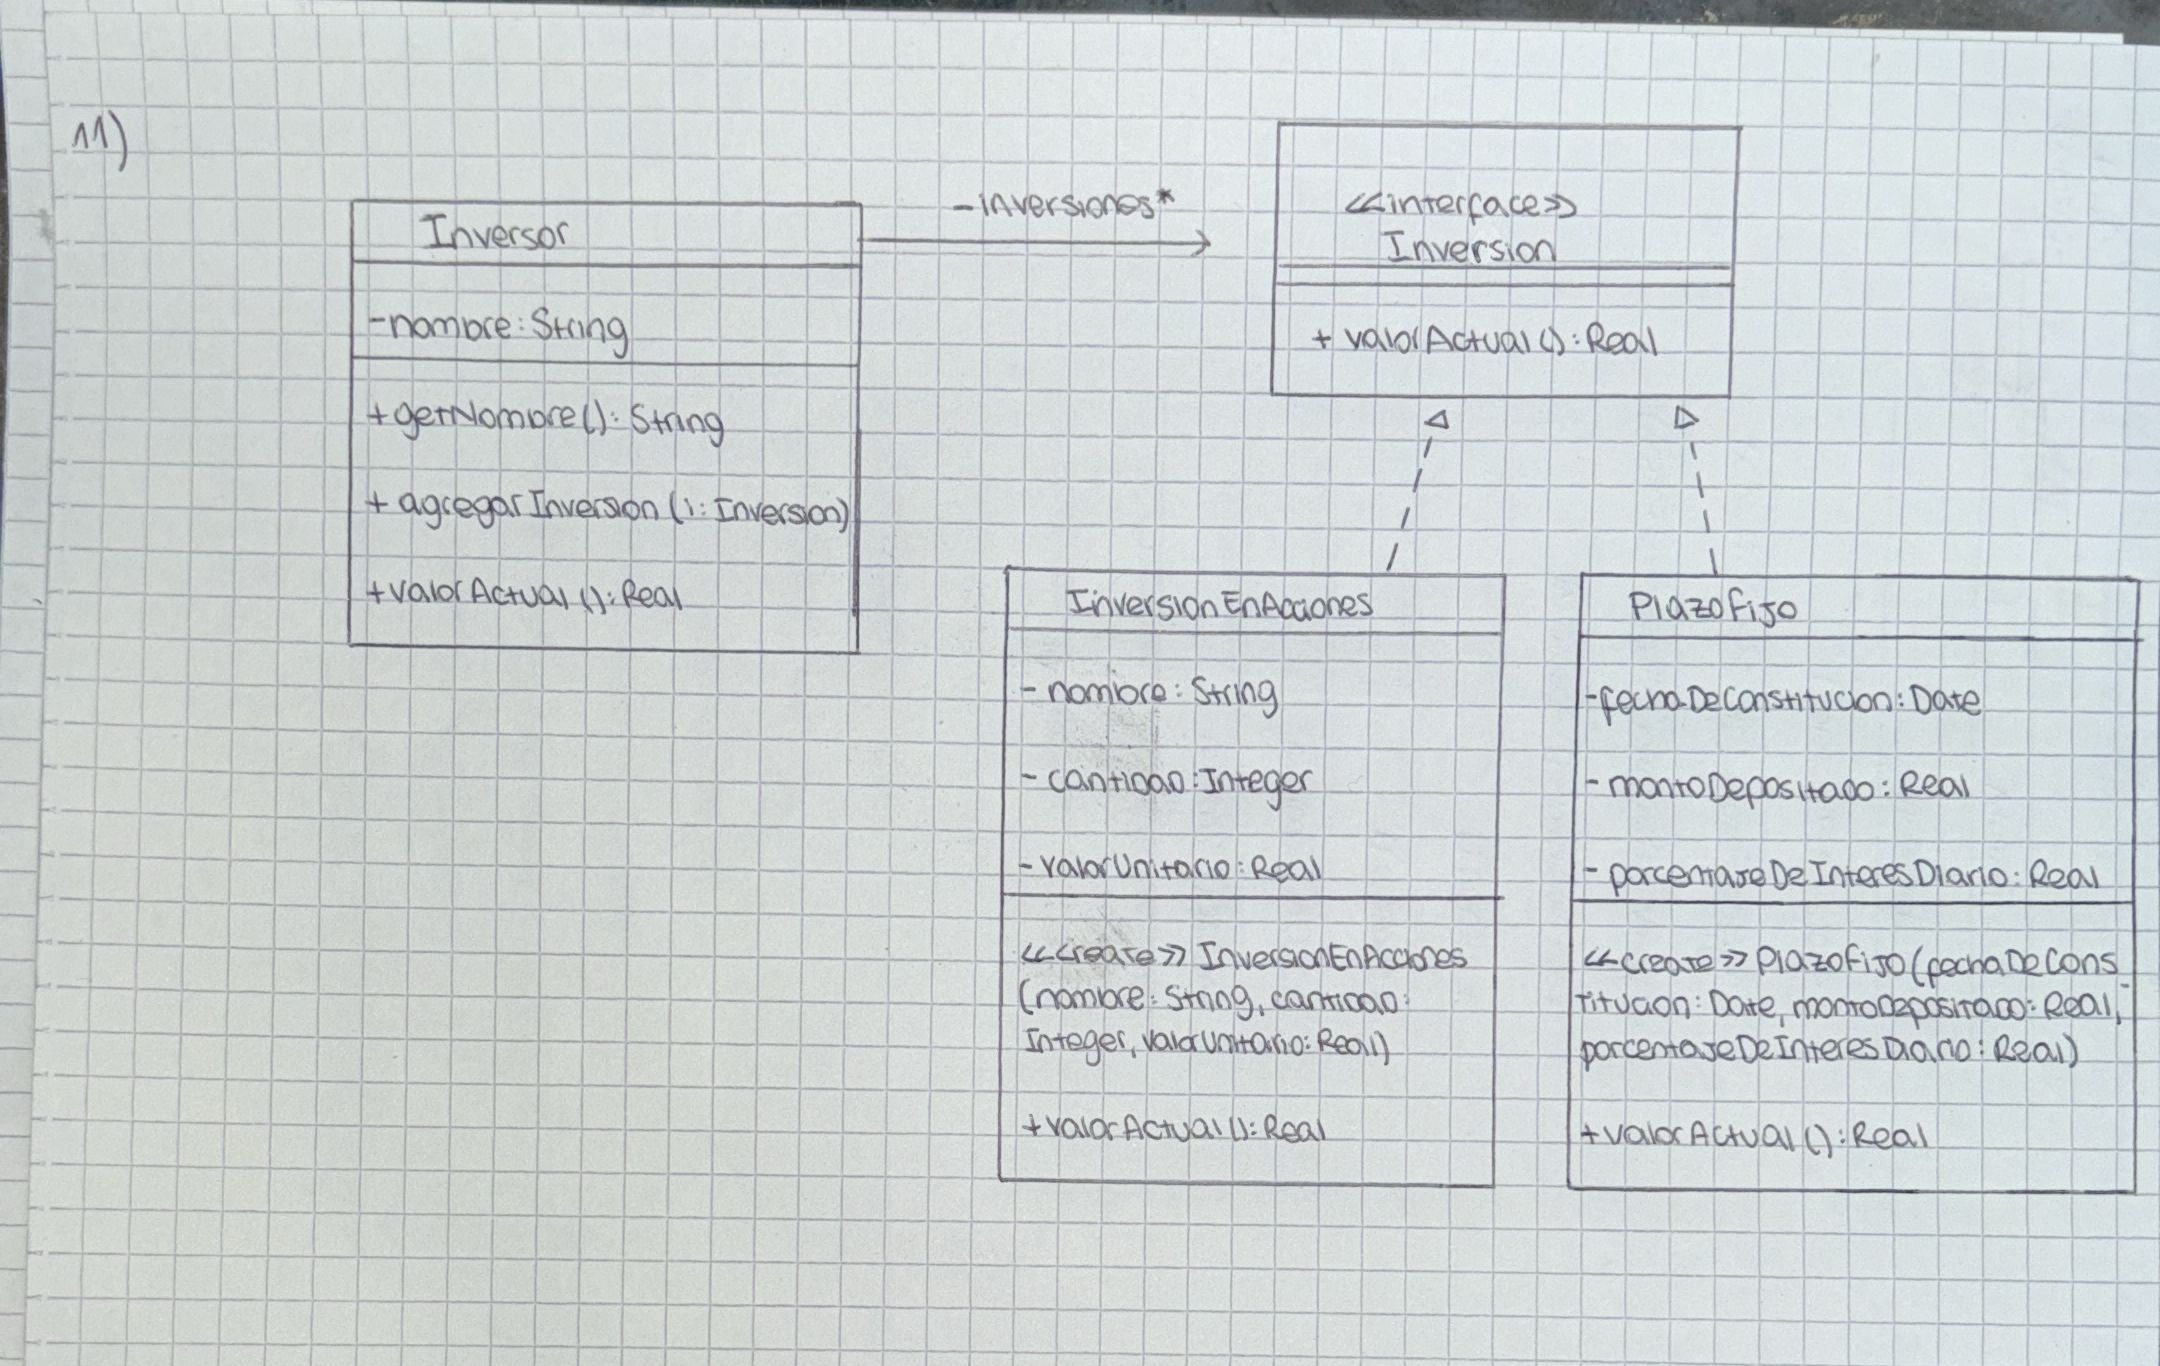 11)
Inversor
-nombre: String
+getNombre(): String
+ agregarInversion (i: Inversion)
+valorActual(): Real
-inversiones*
<<interface>>
Inversion
+ valorActual(): Real
InversionEnAcciones
- nombre: String
- cantidad: Integer
- valorUnitario: Real
<<create>> InversionEnAcciones
(nombre: String, cantidad:
Integer, valorUnitario: Real)
+valorActual(): Real
PlazoFijo
-fechaDeConstitucion: Date
- montoDepositado: Real
- porcentajeDeInteresDiario: Real
<<create>> PlazoFijo(fechaDeCons-
titucion: Date, montoDepositado: Real,
porcentajeDeInteresDiario: Real)
+valorActual(): Real